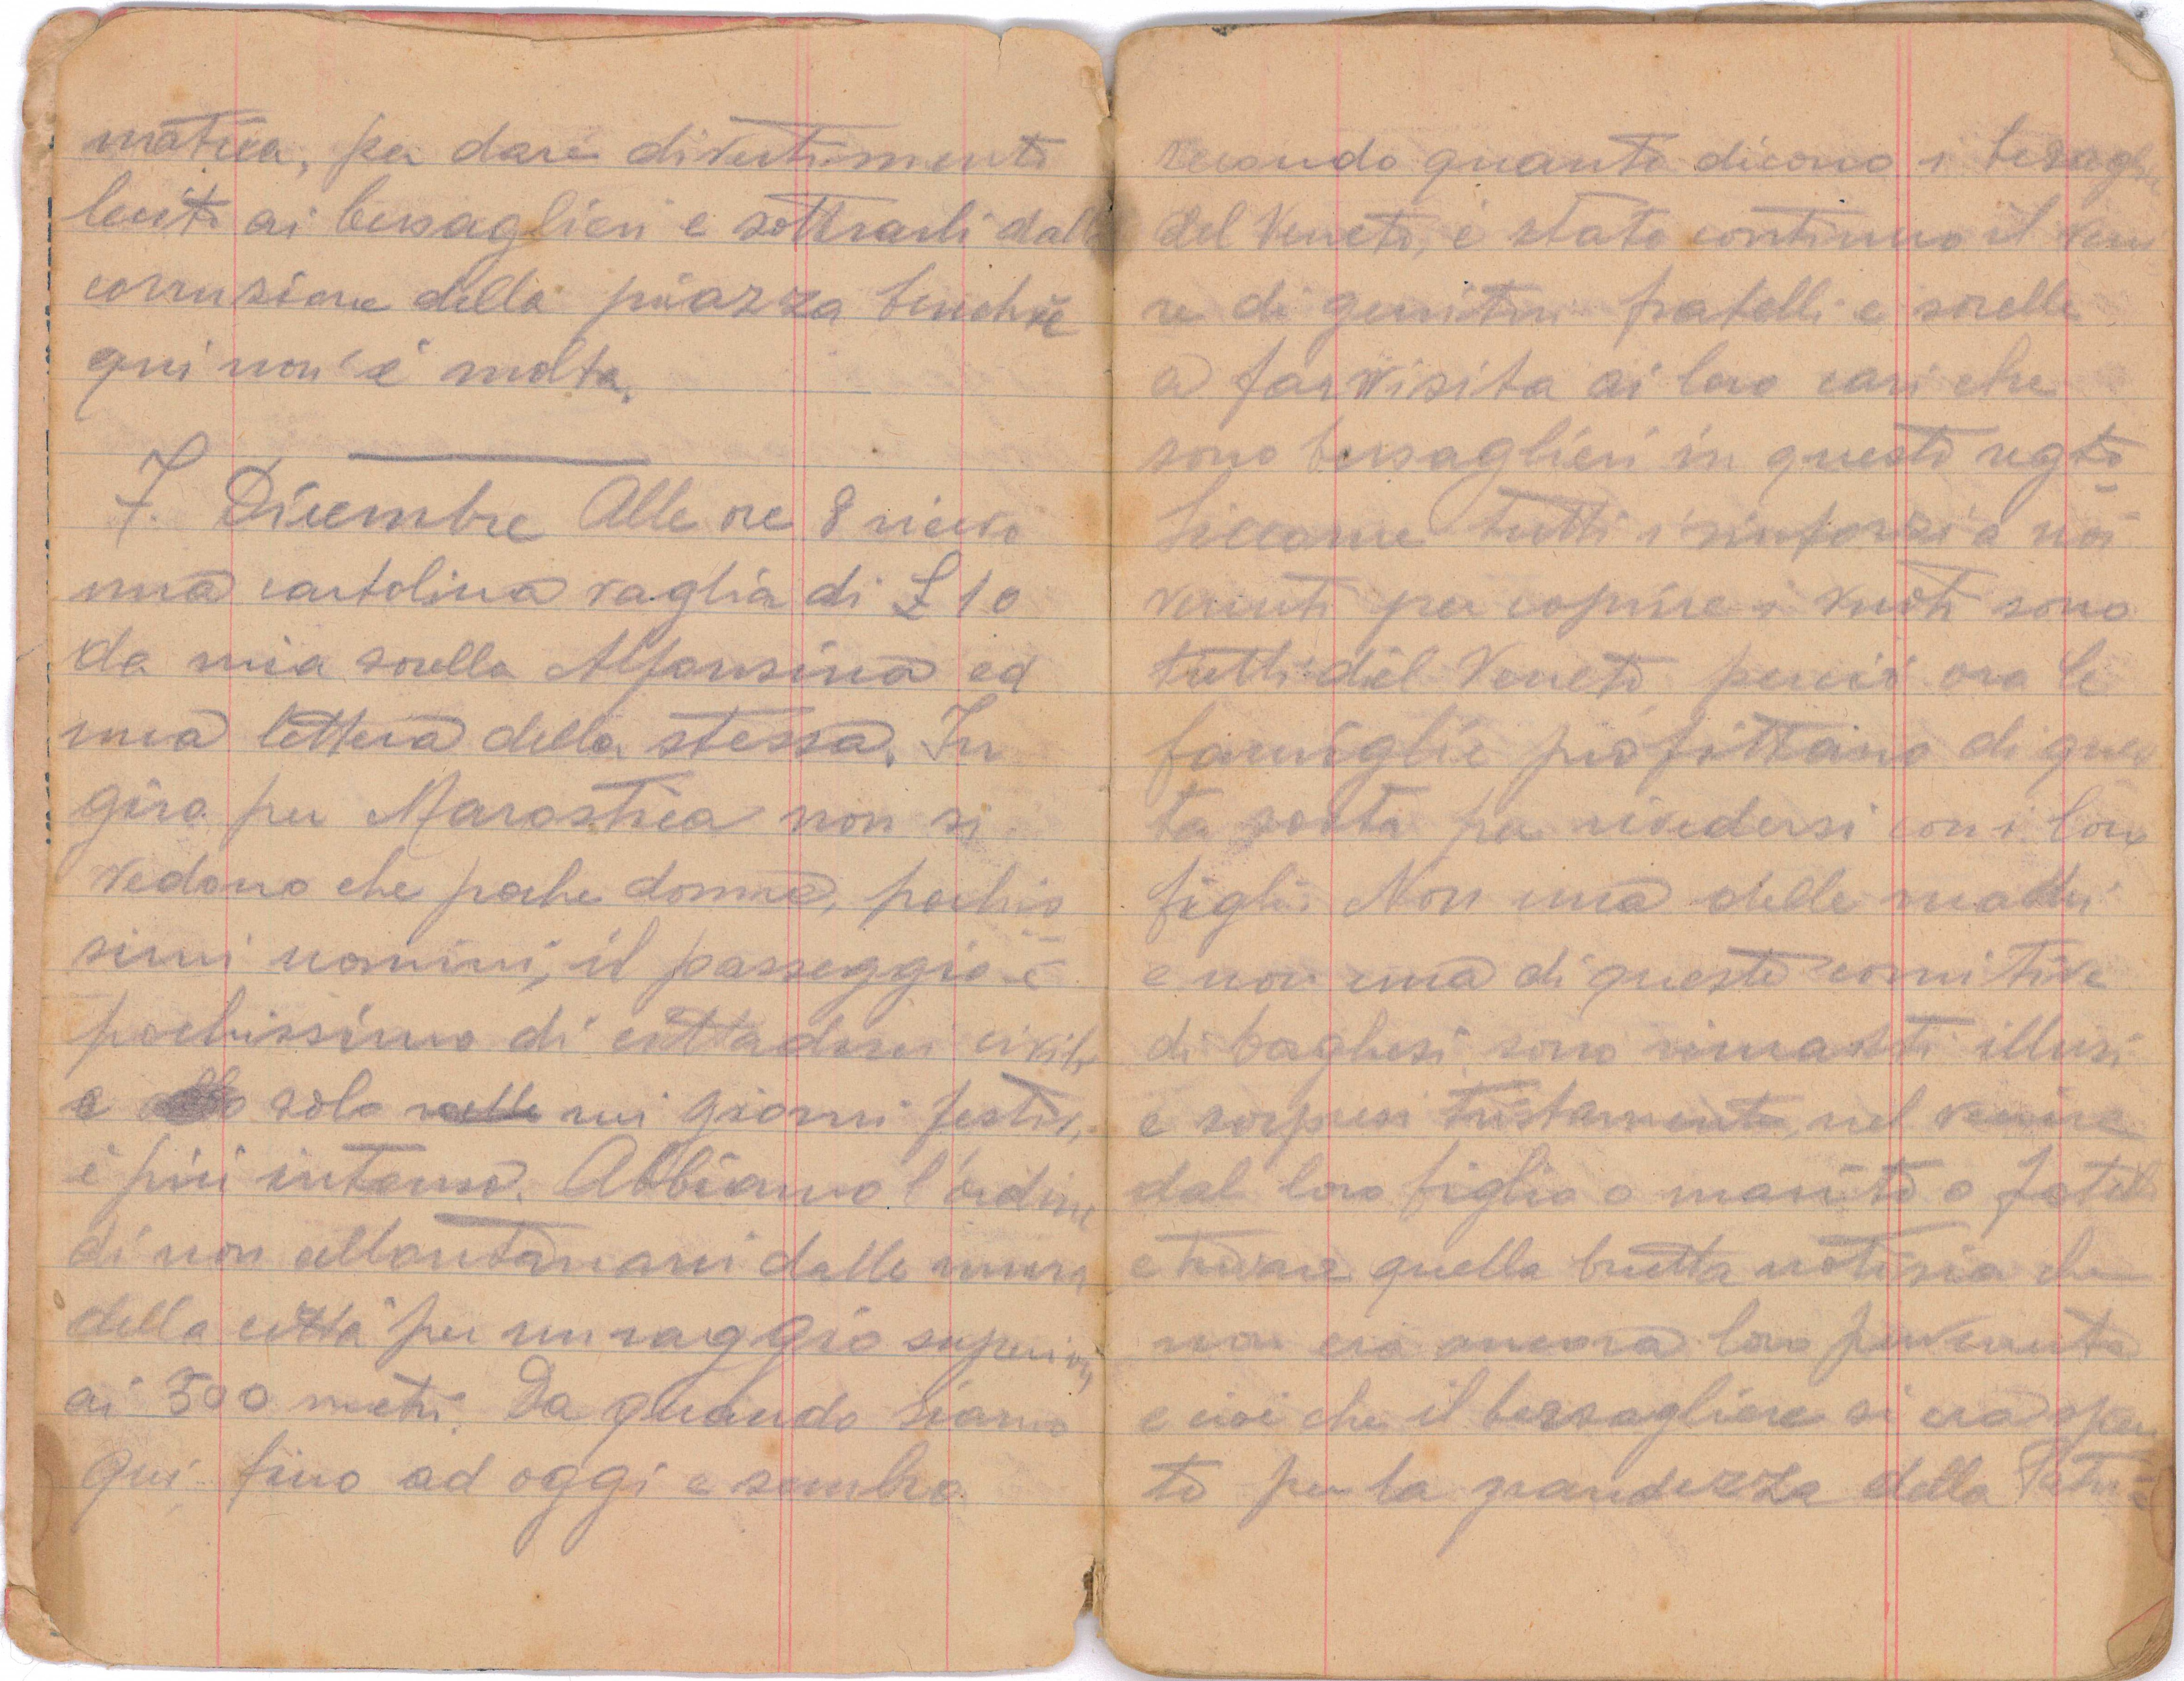 matica, per dare divertimento
lecito ai bersaglieri e sottrarli dalla
corruzione della piazza benchè
qui non è molta.
7. Dicembre Alle ore 8 ricevo
una cartolina vaglia di £ 10
da mia sorella Alfonsina ed
una lettera della stessa. In
giro per Marostica non si
vedono che poche donne, pochis
simi uomini, il passeggio è
pochissimo di cittadini civili
e solo nei giorni festivi
è più intenso. Abbiamo l'ordine
di non allontanarci dalle mura
della città per un raggio superiore
ai 500 metri. Da quando siamo
qui fino ad oggi e sembra
secondo quanto dicono i bersaglie
del Veneto, è stato continuo il veni
re di genitori fratelli e sorelle
a far visita ai loro cari che
sono bersaglieri in questo regto
Siccome tutti i rinforzi a noi
venuti per coprire i vuoti sono
tutti del Veneto perciò ora le
famiglie profittano di ques
ta sosta per rivedersi con i loro
figli. Non una delle madri
e non una di queste comitive
di borghesi sono rimasti illusi
e sorpresi tristamente, nel venire
dal loro figlio o marito o fratello
e trovare quella brutta notizia che
non era ancora loro pervenuta
e cioè che il bersagliere si era spen
to per la grandezza della Patria